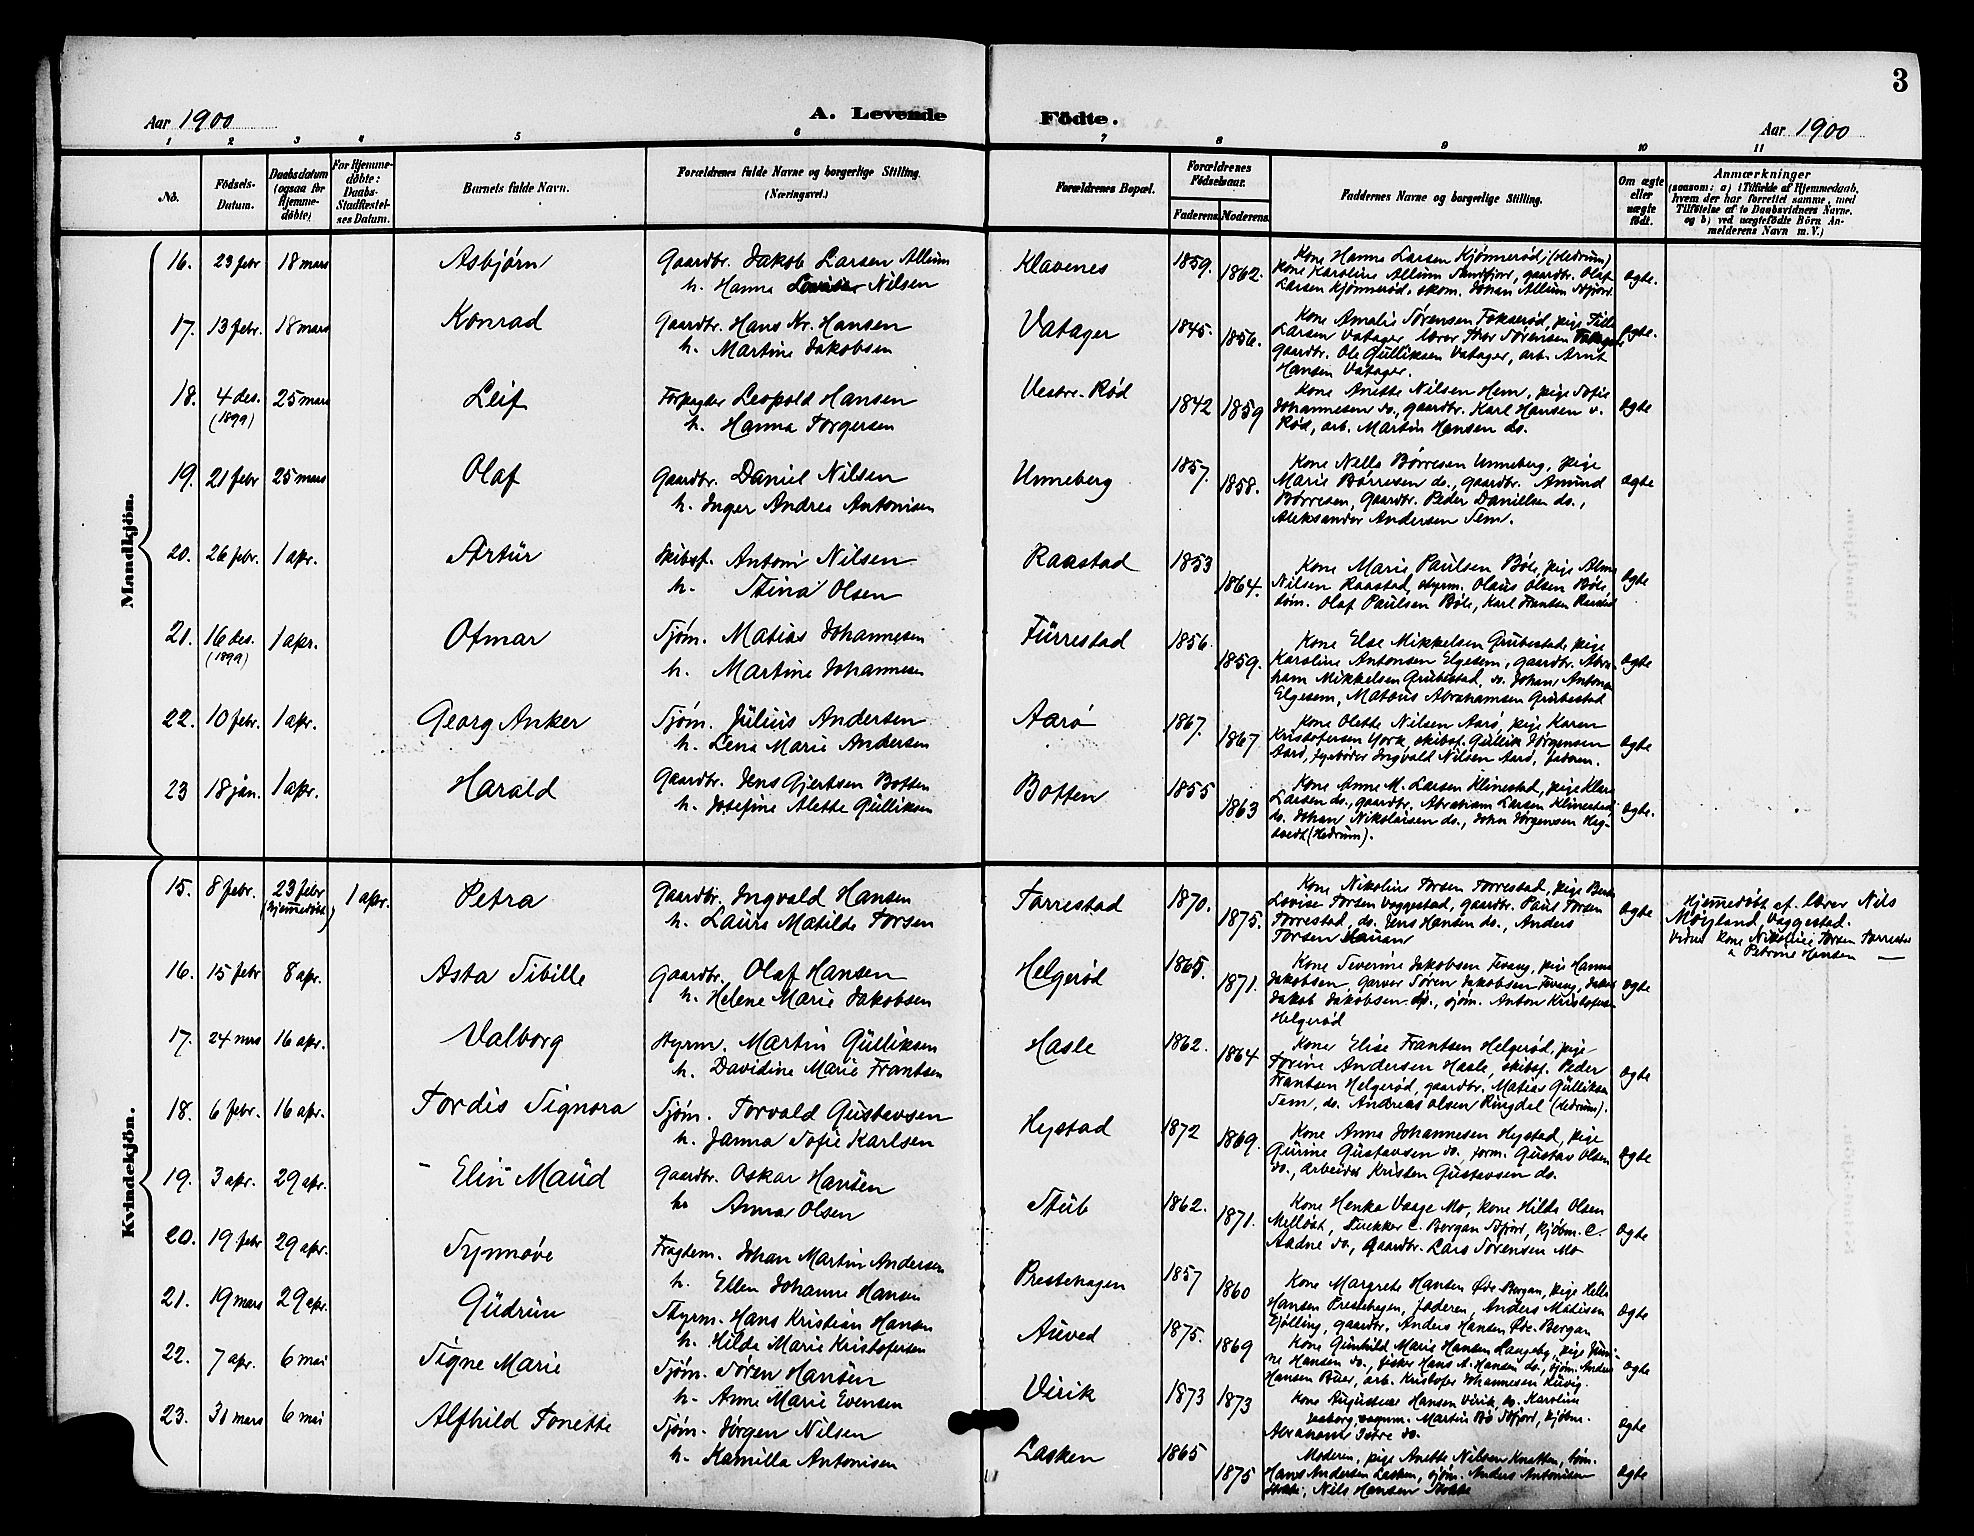 3
Aar 1900
A. Levende
Födte.
Aar 1900
1 2 3 4 5 6 7 8 9 10 11
No.
Födsels-
Datum.
Daabsdatum
(ogsaa for
Hjemme-
döbte)
For Hjemme-
döbte:
Daabs-
Stadfæstel-
ses Datum.
Barnets fulde Navn.
Forældrenes fulde Navne og borgerlige Stilling.
(Næringsvei.)
Forældrenes Bopæl.
Forældrenes
Födselsaar.
Faderens
Moderens
Faddernes Navne og borgerlige Stilling.
Om ægte
eller
uægte
födt.
Anmærkninger
(saasom: a) i Tilfælde af Hjemmedaab,
hvem der har forrettet samme, med
Tilföielse af to Daabsvidners Navne,
og b) ved uægtefödte Börn An-
melderens Navn m. V.)
Mandkjön.
16. 23 febr 18 mars Asbjørn Gaardbr. Jakob Larsen Allum Klavenes 1859. 1862. ægte.
h. Hanna Nilsen
Kone Hanna Larsen Kjønnerød, (Hedrum)
Kone Karoline Allum Sandfjord, gaardbr. Olaf
Larsen Kjønnerød, skom. Johan Allum
17. 13 febr. 18 mars Konrad Gaardbr. Hans Kr. Hansen Vatager 1845. 1856. ægte.
h. Martine Jakobsen
Kone Amalie Sørensen Fokserød, pige
Larsen Vatager, lærer Thor Sørensen
Gaardbr. Ole Gulliksen Vatager, arb. Arnt
Hansen Vatager.
18. 4 des. (1899) 25 mars Leif Forpagter Leopold Hansen Vestre-Rød 1842 1859 ægte
h. Hanna Torgersen
Kone Anette Nilsen Hem, pige Sofie
Johannesen do., gaardbr. Karl Hansen v.
Rød, arb. Martin Hansen do.
19. 21 febr 25 mars Olaf Gaardbr. Daniel Nilsen Unneberg 1857. 1858. ægte
h. Inger Andrea Antonisen
Kone Nella Børresen Unneberg, pige
Marie Børresen do., gaardbr. Amund
Børresen, Gaardbr. Peder Danielsen do.,
Aleksander Andersen Sem.
20. 26 febr. 1 apr. Artur Skibsf. Anton Nilsen Raastad 1853 1864. ægte
h. Stina Olsen
Kone Marie Paulsen Bøle, pige
Nilsen Raastad, styrm. Olaus Olsen Bøle,
tøm. Olaf Paulsen Bøle, Karl Frantsen
21. 16 des. (1899) 1 apr. Otmar Sjøm. Matias Johannesen Furrestad 1856 1859. ægte
h. Martine Johannesen
Kone Else Mikkelsen Grubestad, pige
Karoline Antonsen Elgesem, gaardbr. Abra-
ham Mikkelsen Grubestad, do. Johan Antonsen
Elgesem, Abrahamsen Grubestad
22. 10 febr. 1 apr. Georg Anker Sjøm. Julius Andersen Aarø 1867. 1867 ægte
h. Lena Marie Andersen
Kone Olette Nilsen Aarø, pige Karen
Kristofersen York, skibsf. Gullik Jørgensen
Aarø, fyrbøder Ingvald Nilsen Aarø, faderen.
23 18 jan. 1 apr. Harald Gaardbr. Jens Gjertsen Botten Botten 1855 1863 ægte.
h. Josefine Alette Gulliksen
Kone Anne M. Larsen Klinestad, pige Klara
Larsen do., gaardbr. Abraham Larsen Klinestad,
do. Johan Nikolaisen do., John Jørgensen
(Hedrum).
Kvindekjön.
15. 8 febr. 23 febr (hjemmedøbt) 1 apr. Petra Gaardbr. Ingvald Hansen Torrestad 1870. 1875. ægte
h. Laura Matilde Torsen
Kone Nikoline Torsen Torrestad, pige
Lovise Torsen Vaggestad, gaardbr. Paul Torsen
Torrestad, do. Jens Hansen do., Anders
Torsen
Hjemmedøbt af lærer Nils
Møyland, Vaggestad.
Vidner kone Nikoline Torsen
Petrine Hansen —
16. 15 febr 8 apr. Asta Sibille Gaardbr. Olaf Hansen Helgerød 1865. 1871. ægte
h. Helene Marie Jakobsen
Kone Severine Jakobsen, pige Hanna
Jakobsen, garver Søren Jakobsen
Jakob Jakobsen do., sjøm. Anton Kristofersen
Helgerød
17. 24 mars 16 apr. Valborg Styrm. Martin Gulliksen Hasle 1862. 1864 ægte
h. Davidine Marie Frantsen
Kone Elise Frantsen Helgerød, pige
Torine Andersen Hasle, skibsf. Peder
Frantsen Helgerød, gaardbr. Matias Gulliksen
Sem, do. Andreas Olsen Ringdal (Hedrum).
18. 6 febr. 16 apr. Tordis Signora Sjøm. Torvald Gustavsen Hystad 1872 1869. ægte
h. Janna Sofie Karlsen
Kone Anna Johannesen Hystad, pige
Gurine Gustavsen do. form. Gustav Olsen
do., arbeider Kristen Gustavsen do.
19. 3 apr. 29 apr. Elin Maud Gaardbr. Oskar Hansen Stub 1862. 1871. ægte
h. Anna Olsen
Kone Henka Vaage Mo, kone Hilda Olsen
Melløst, C. Bergan, kjøbm. C.
Aadne do., Gaardbr. Lars Sørensen Mo
20. 19 febr 29 apr. Synnøve Fragtem. Johan Martin Andersen Prestehagen 1857 1860 ægte
h. Ellen Johanne Hansen
Kone Margrete Hansen Øde-Bergan, pige
Hansen Prestehagen, faderen, Anders Matisen
Tjølling, gaardbr. Anders Hansen Øde-Bergan
21. 19 mars 29 apr. Gudrun Styrm. Hans Kristian Hansen Auved 1875. 1869 ægte
h. Hilda Marie Kristofersen
Kone Gunhild Marie Hansen Langeby, pige
Hansen do., fisker Hans A. Hansen do., sjøm. Anders
Hansen Buer, arb. Kristofer Johannesen
22. 7 apr. 6 mai Signe Marie Sjøm. Søren Hansen Virik 1873 1873 ægte
h. Anne Marie Evensen
Kone Hansen Virik, do. Karoline
Martin Bø, kjøbm.
Abraham do.
23. 31 mars 6 mai Alfhild Tonette Sjøm. Jørgen Nilsen Lasken 1865 1875 ægte
h. Kamilla Antonisen
Moderen, pige Anette Nilsen Knatten, tøm.
Hans Andersen Lasken, sjøm. Anders Antonisen
Nils Hansen